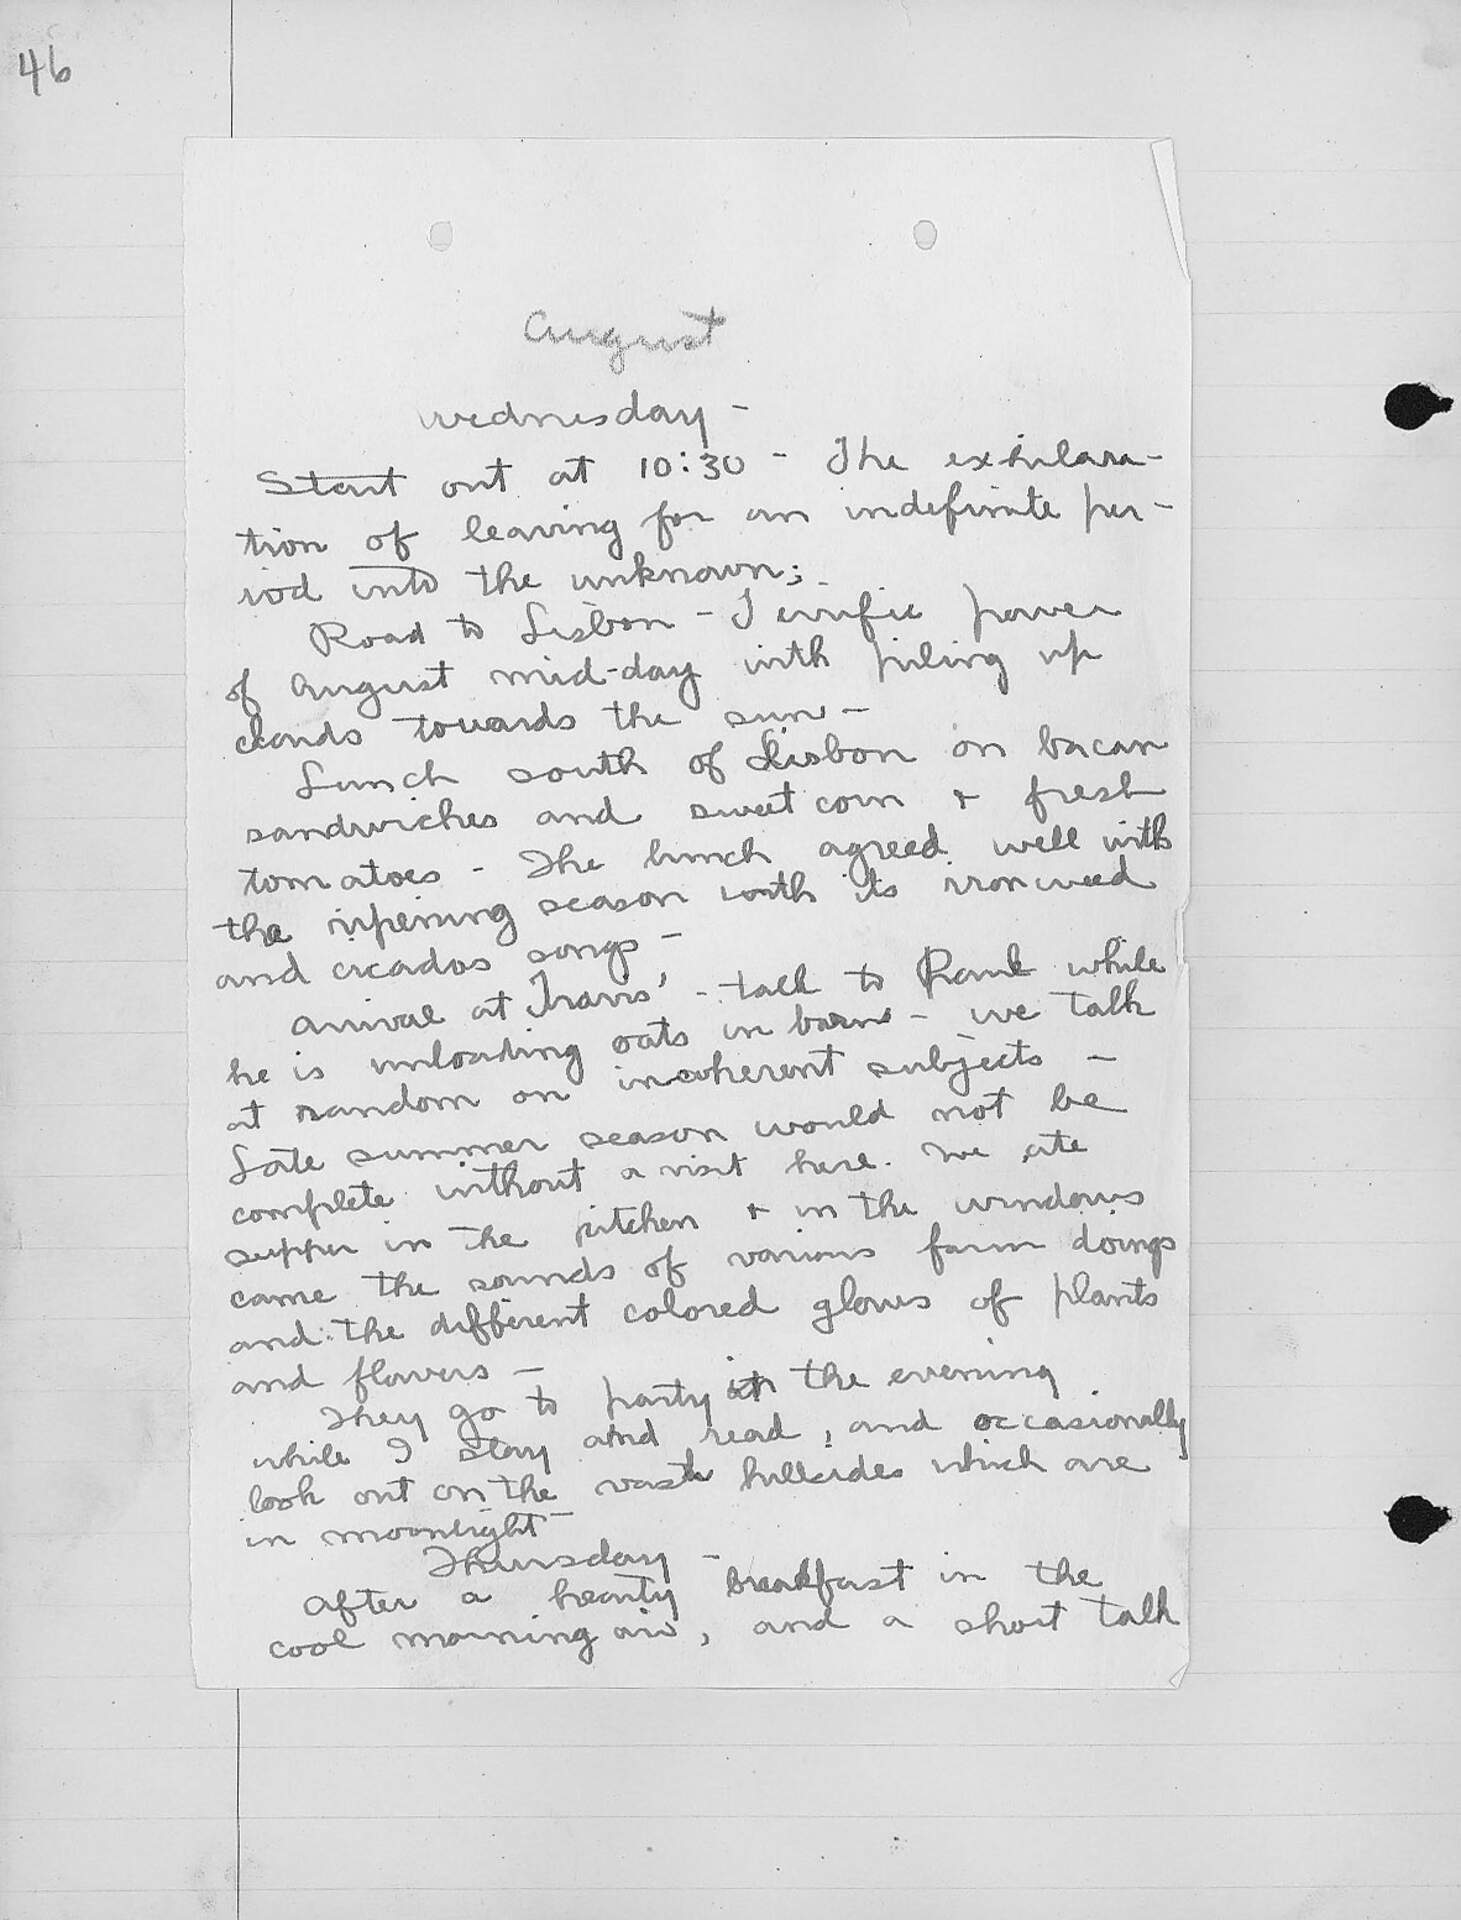 46
August
Wednesday -
Start out at 10:30 - The exhilara-
tion of leaving for an indefinite per-
iod into the unknown;
Road to Lisbon - Terrific power
of August mid-day with piling up
clouds towards the sun -
Lunch south of Lisbon on bacan
sandwiches and sweet corn + fresh
tomatoes - The lunch agreed well with
the ripening season with its ironweed
and cicadas songs -
Arrival at Travis' - talk to Frank while
he is unloading oats in barn - we talk
at random on incoherent subjects -
Late summer season would not be
complete without a visit here. We ate
supper in the kitchen + in the windows
came the sounds of various farm doings
and the different colored glows of plants
and flowers -
They go to party in the evening
while I stay and read, and occasionally
look out on the vast hillsides which are
in moonlight -
Thursday -
After a hearty breakfast in the
cool morning air, and a short talk